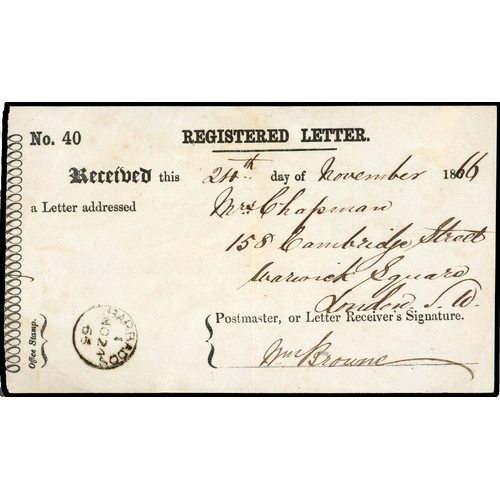 No. 40 REGISTERED LETTER.
Received this 24th day of November 1866
a Letter addressed Mrs Chapman
158 Cambridge Street
Warwick Square
London. S. W.
Postmaster, or Letter Receiver's Signature.
Wm Browne
Office Stamp.
BARBADOS
1
NO 24